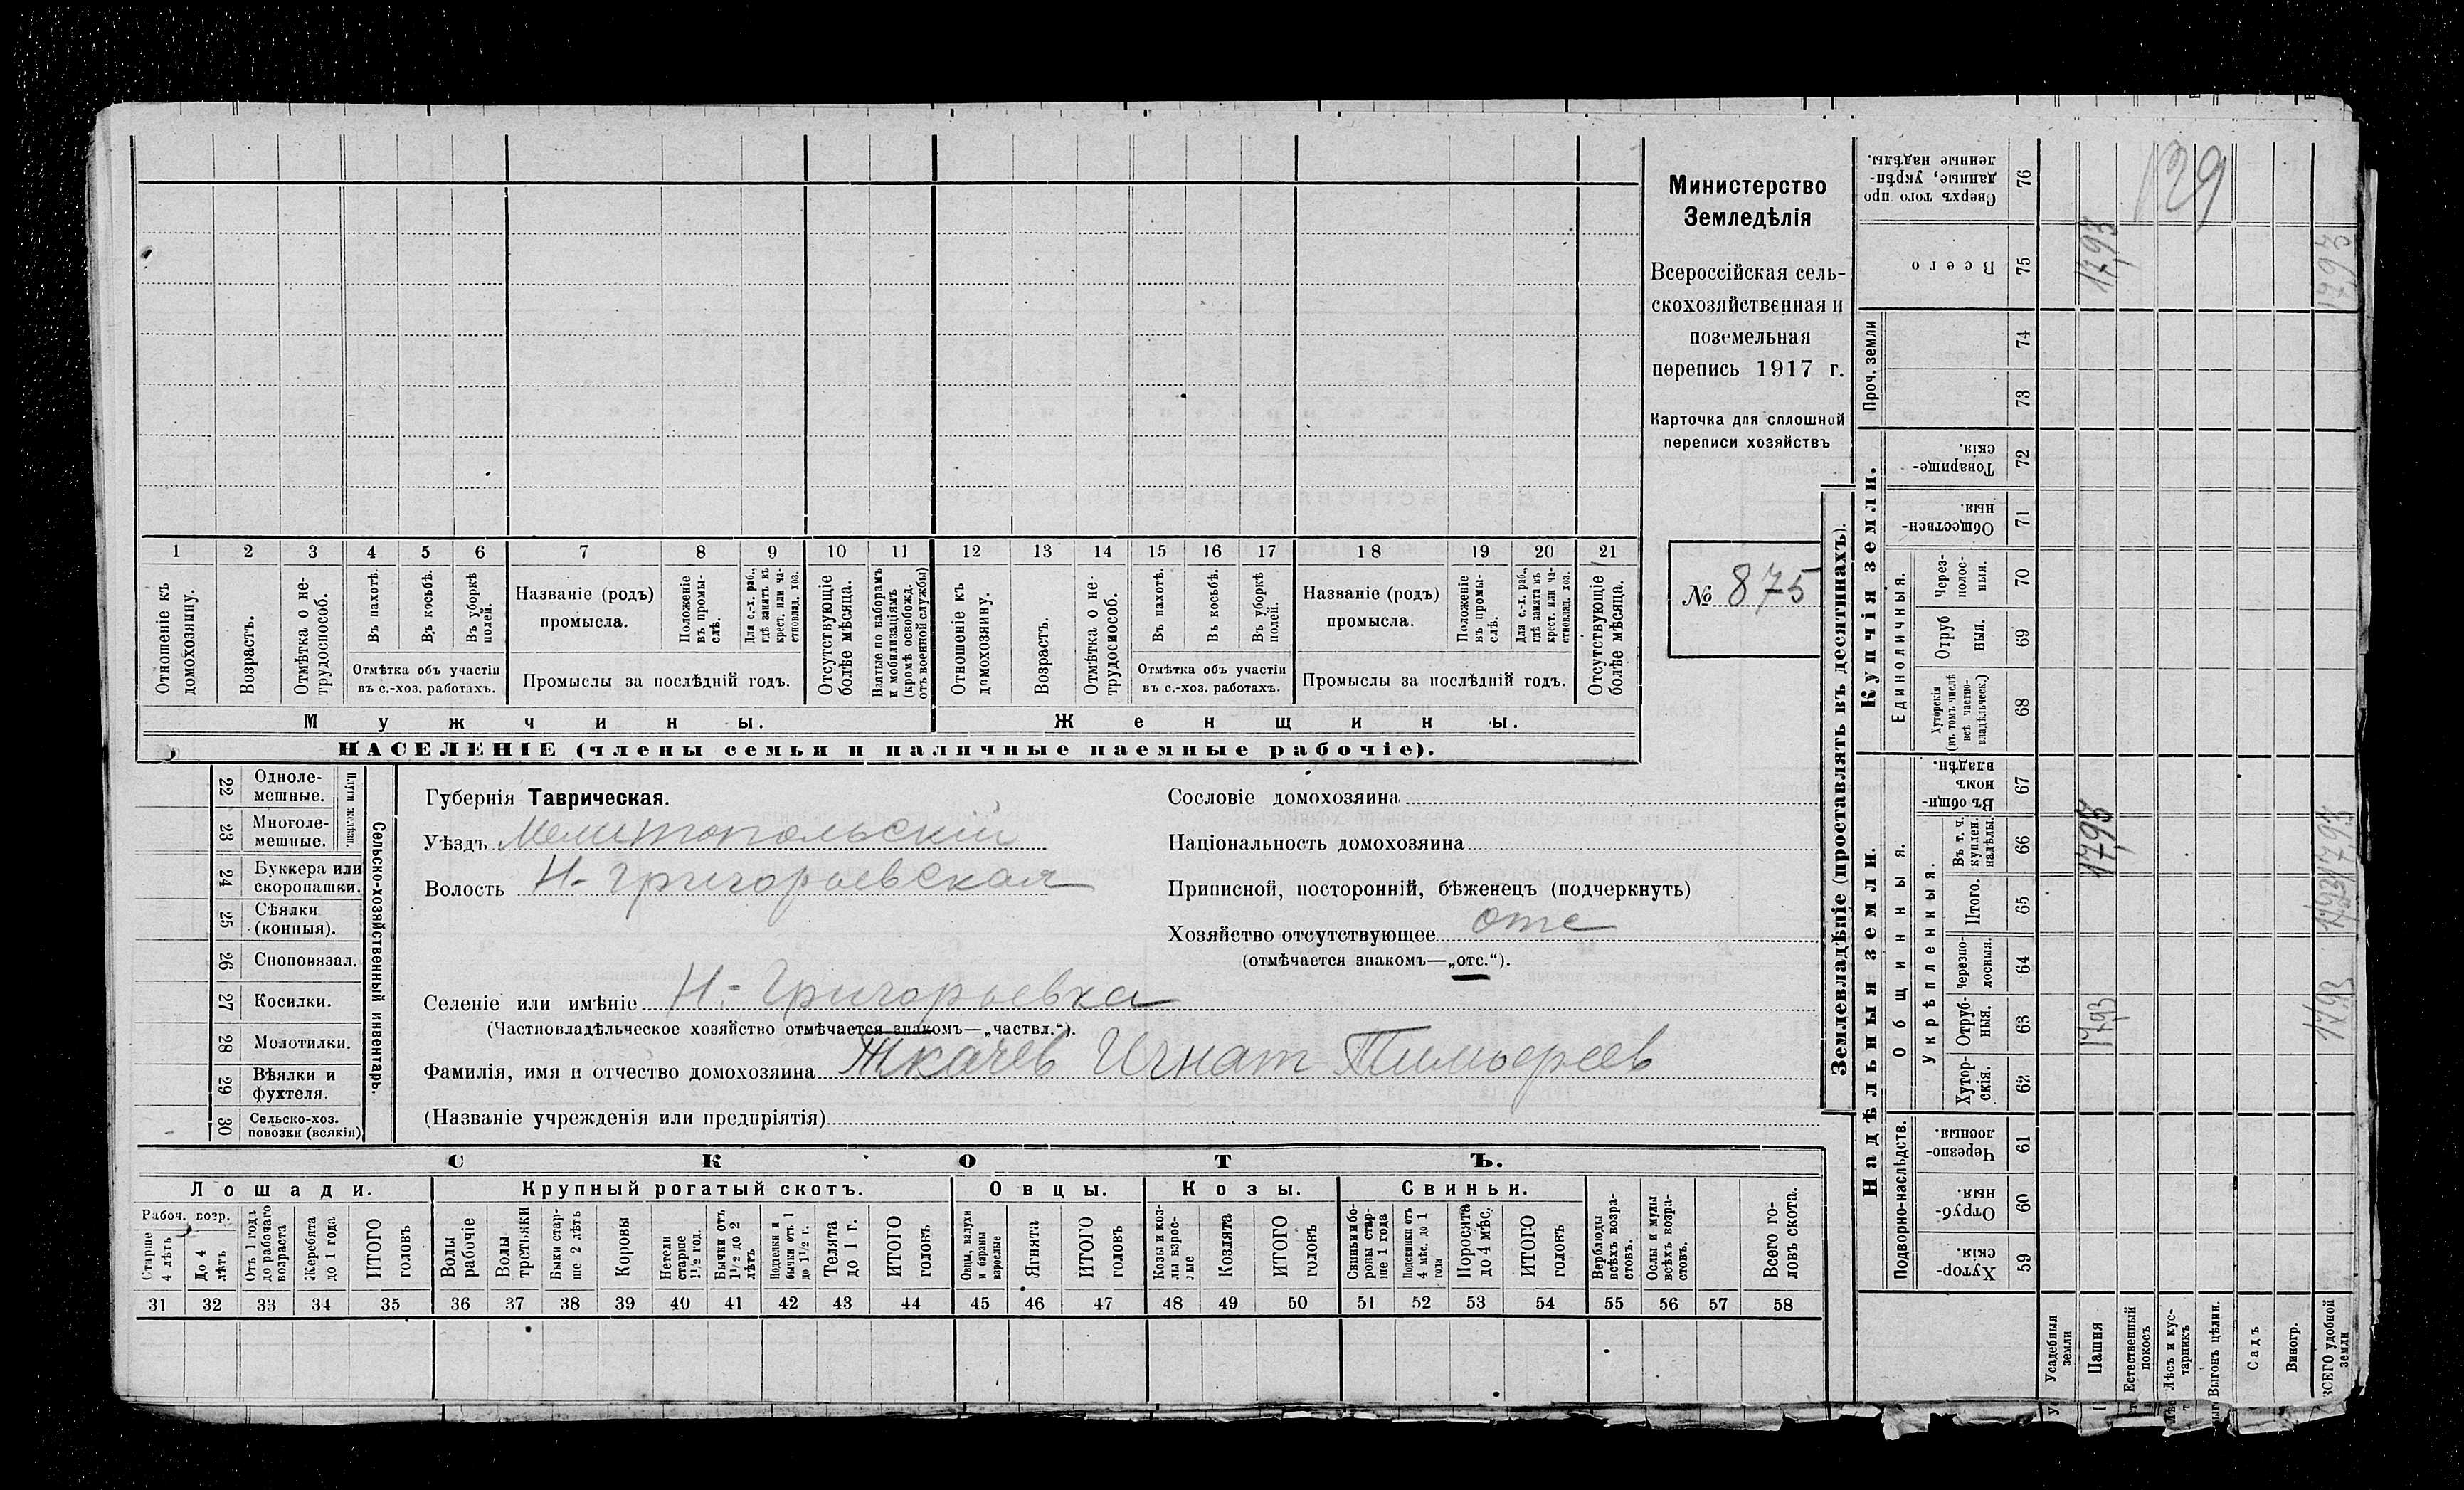 1 2 3 4 5 6 7 8 9 10 11 12 13 14 15 16 17 18 19 20 21
Отношеніе къ домохозяину.
Возрастъ.
Отмѣтка о не-
трудоспособ.
Въ пахотѣ.
Въ косьбѣ.
Въ уборкѣ
полей.
Отмѣтка объ участіи
въ с.-хоз. работахъ.
Названіе (родъ)
промысла.
Положеніе
въ промы-
слѣ.
Для с.-х. раб.,
гдѣ занятъ въ
крест. или ча-
стновлад. хоз.
Промыслы за послѣдній годъ.
Отсутствующіе
болѣе мѣсяца.
Взятые по наборамъ
и мобилизаціямъ
(кромѣ освобожд.
отъ военной службы)
Отношеніе къ
домохозяину.
Возрастъ.
Отмѣтка о не-
трудоспособ.
Въ пахотѣ.
Въ косьбѣ.
Въ уборкѣ
полей.
Отмѣтка объ участіи
въ с.-хоз. работахъ.
Названіе (родъ)
промысла.
Положеніе
въ промы-
слѣ.
Для с.-х. раб.,
гдѣ занята въ
крест. или ча-
стновлад. хоз.
Промыслы за послѣдній годъ.
Отсутствующіе
болѣе мѣсяца.
Мужчины.
Женщины.
НАСЕЛЕНІЕ (члены семьи и наличные наемные рабочіе).
Министерство
Земледѣлія
Всероссійская сель-
скохозяйственная и
поземельная
перепись 1917 г.
Карточка для сплошной
переписи хозяйствъ
№ 875
22 Одноле-
мешные.
23 Многоле-
мешные.
Плуги желѣзн.
24 Буккера или
скоропашки.
25 Сѣялки
(конныя).
26 Сноповязал.
27 Косилки.
28 Молотилки.
29 Вѣялки и
фухтеля.
30 Сельско-хоз.
повозки (всякія)
Сельско-хозяйственный инвентарь.
Губернія Таврическая.
Уѣздъ Мелитопольскій
Волость Н-Григорьевская
Сословіе домохозяина
Національность домохозяина
Приписной, посторонній, бѣженецъ (подчеркнуть)
Хозяйство отсутствующее отс
(отмѣчается знакомъ—„отс.“).
Селеніе или имѣніе Н.-Григорьевка
(Частновладѣльческое хозяйство отмѣчается знакомъ—„частвл.“).
Фамилія, имя и отчество домохозяина Ткачев Игнат Тимофеев
(Названіе учрежденія или предпріятія)
СКОТЪ.
Лошади.
Крупный рогатый скотъ.
Овцы.
Козы.
Свиньи.
Рабоч. возр.
Старше
4 лѣтъ
До 4
лѣтъ
Отъ 1 года
до рабочаго
возраста
Жеребята
до 1 года
ИТОГО
головъ
Волы
рабочіе
Волы
третьяки
Быки стар-
ше 2 лѣтъ
Коровы
Нетели
старше
1½ год.
Бычки отъ
1½ до 2
лѣтъ
Подтелки и
бычки отъ 1
до 1½ г.
Телята
до 1 г.
ИТОГО
головъ
Овцы, валухи
и бараны
взрослые
Ягнята
ИТОГО
головъ
Козы и коз-
лы взрос-
лые
Козлята
ИТОГО
головъ
Свиньи и бо-
ровы стар-
ше 1 года
Подсвинки отъ
4 мѣс. до 1
года
Поросята
до 4 мѣс.
ИТОГО
головъ
Верблюды
всѣхъ возра-
стовъ.
Ослы и мулы
всѣхъ возра-
стовъ.
Всего го-
ловъ скота.
31 32 33 34 35 36 37 38 39 40 41 42 43 44 45 46 47 48 49 50 51 52 53 54 55 56 57 58
Землевладѣніе (проставлять въ десятинахъ).
Надѣльныя земли.
Купчія земли.
Проч. земли
Подворно-наслѣдств.
Общинныя.
Укрѣпленныя.
Единоличныя.
Сверхъ того про
данные, укрѣп-
ленные надѣлы.
76
129
Всего
75
17,93
17,93
74
73
Товарище-
скія.
72
Обществен-
ныя.
71
Через-
полос-
ныя.
70
Отруб
ныя.
69
Хуторскія
(въ томъ числѣ
всѣ частно-
владѣльческ.)
68
Въ общи-
номъ
владѣн.
67
Въ т. ч.
куплен.
надѣлы.
66
17,93
17,93
Итого.
65
17,93
Черезпо-
лосныя.
64
Отруб-
ныя.
63
17,93
17,93
Хутор-
скія.
62
Черезпо-
лосныя.
61
Отруб-
ныя.
60
Хутор-
скія.
59
Усадебныя
земли
Пашня
Естественный
покосъ
Лѣсъ и кус-
тарникъ
Выгонъ цѣлин.
Садъ
Виногр.
ВСЕГО удобной
земли